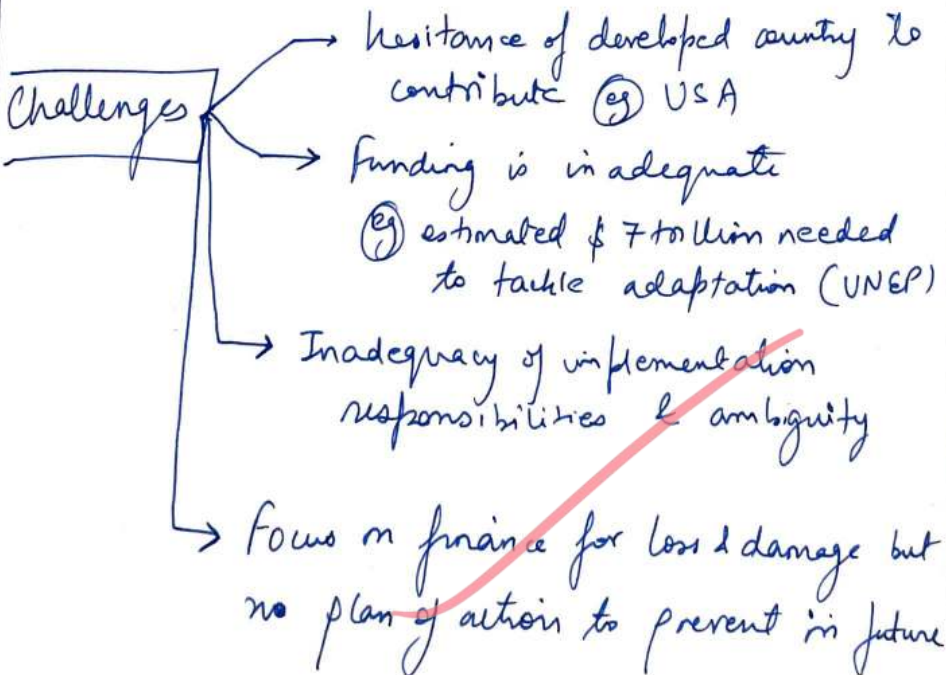 Challenges
hesitance of developed country to
contribute eg USA
Funding is inadequate
eg estimated $ 7 trillion needed
to tackle adaptation (UNEP)
Inadequacy of implementation
responsibilities & ambiguity
Focus on finance for loss & damage but
no plan of action to prevent in future